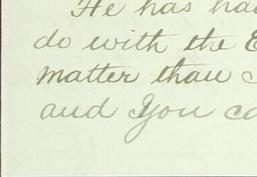 He has had
do with the E
matter than
and You co